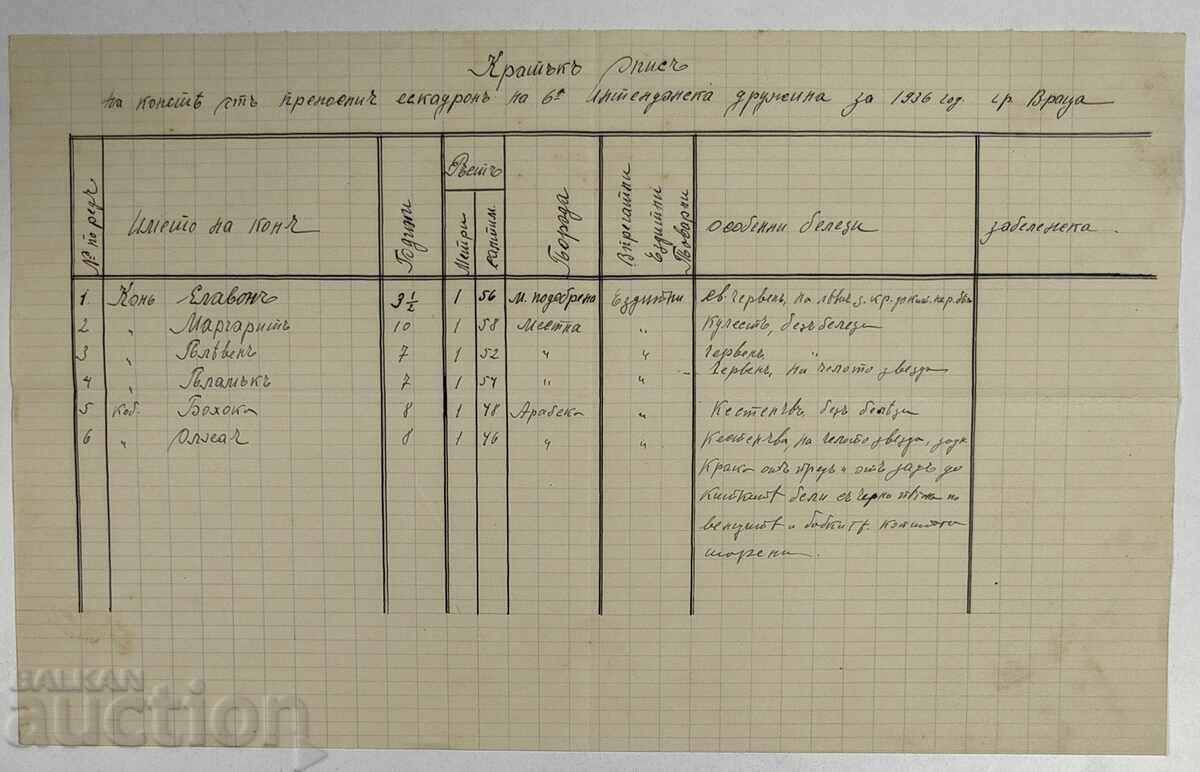 Кратъкъ Описъ
на конетѣ отъ преносния ескадронъ на 6а Интенданска дружина за 1936 год. гр. Враца
№ по редъ
Името на коня
Години
Ръстъ
Метри
сантим.
Порода
Впрегатни
Ездитни
Товарни
особенни белези
забележка.
1 Конь Славонъ 3 1/2 1 56 м. подобрена Ездитни св. червенъ, на
2 „ Маргаритъ 10 1 58 местна „ Кулестъ, безъ белези
3 „ Плѣвенъ 7 1 52 „ „ червенъ „
4 „ Пламъкъ 7 1 54 „ „ Червенъ, на челото звезда
5 коб. Бохока 8 1 48 Арабска „ Кестенява, безъ белези
6 „ 8 1 46 „ „ Кестенява, на челото звезда,
Крака отъ предъ и отъ задъ до
бели съ черно по
и
BALKAN
auction